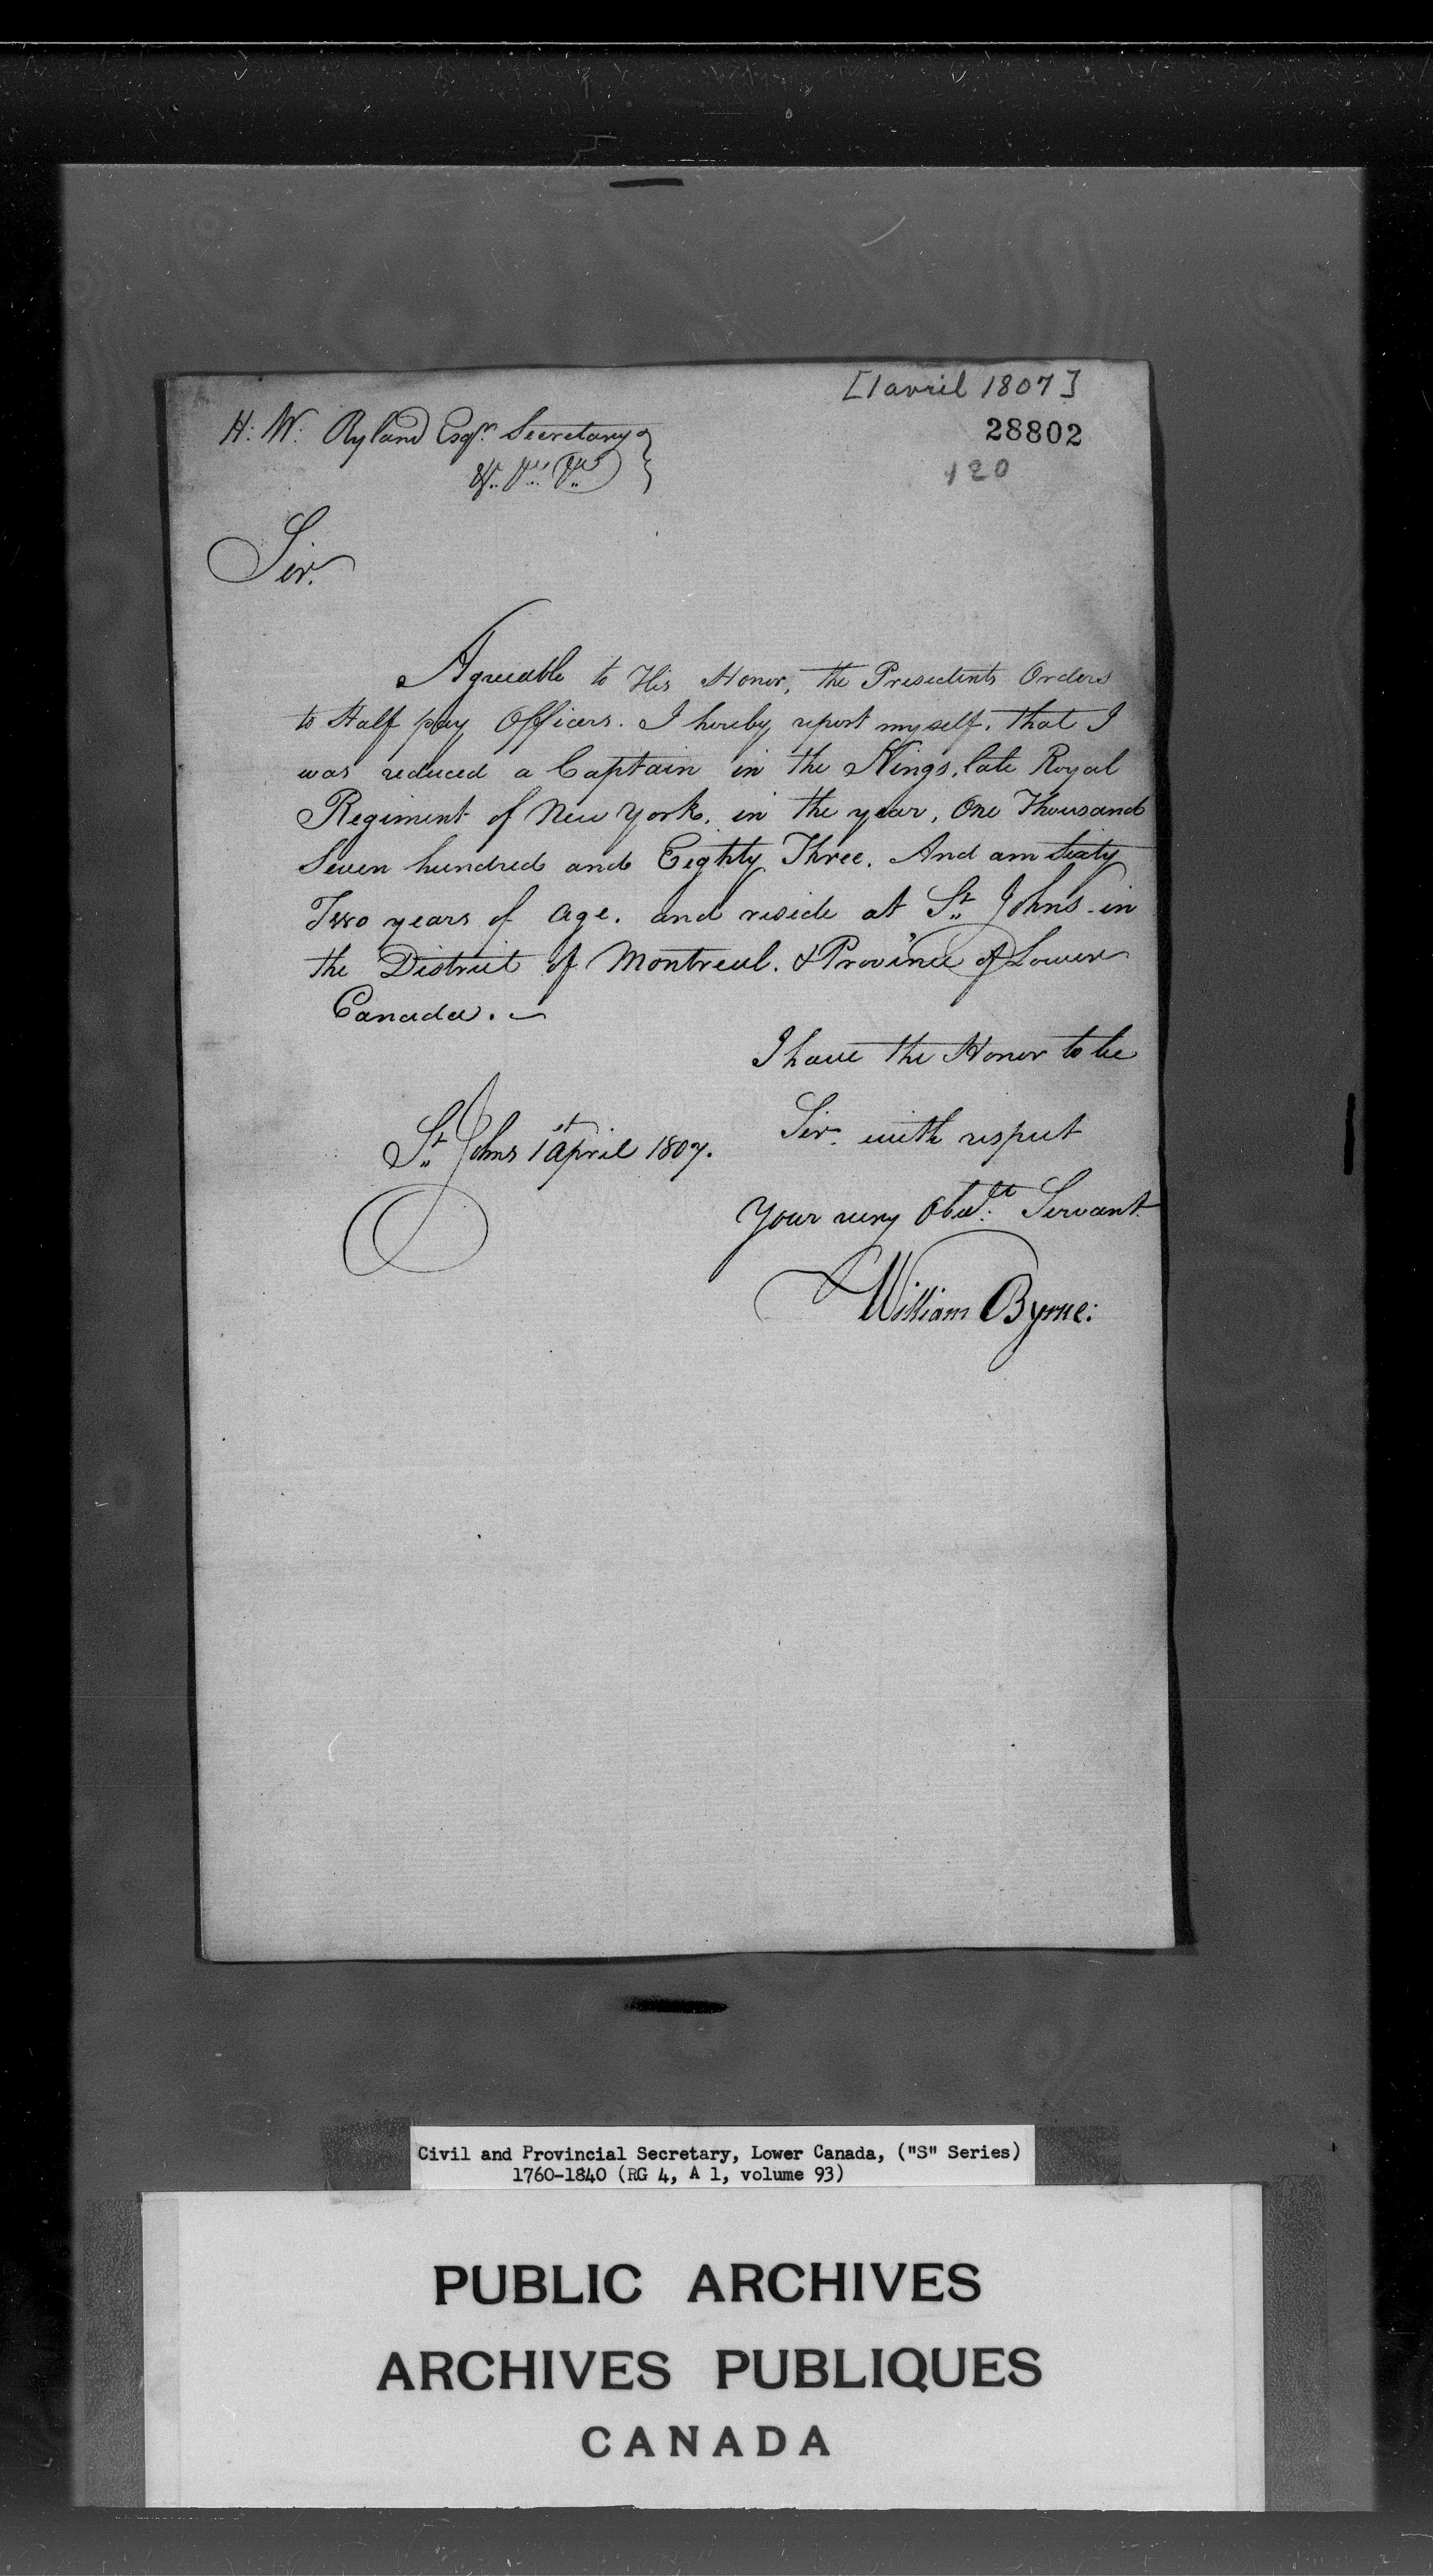 [1 avril 1807]
28802
120
H: W: Ryland Esqr. Secretary
&c. &c. &c.
Sir.
Agreeable to His Honor, the Presidents Orders
to Half pay Officers. I hereby report myself. that I
was reduced a Captain in the Kings, late Royal
Regiment of New York. in the year, One Thousand
Seven hundred and Eighty Three. And am Sixty
Two years of age. and reside at St. Johns in
the District of Montreal. & Province of Lower
Canada.
I have the Honor to be
Sir with respect
St. Johns 1st April 1807.
Your very Obedt. Servant
William Byrne:
Civil and Provincial Secretary, Lower Canada, ("S" Series)
1760-1840 (RG 4, A 1, volume 93)
PUBLIC ARCHIVES
ARCHIVES PUBLIQUES
CANADA